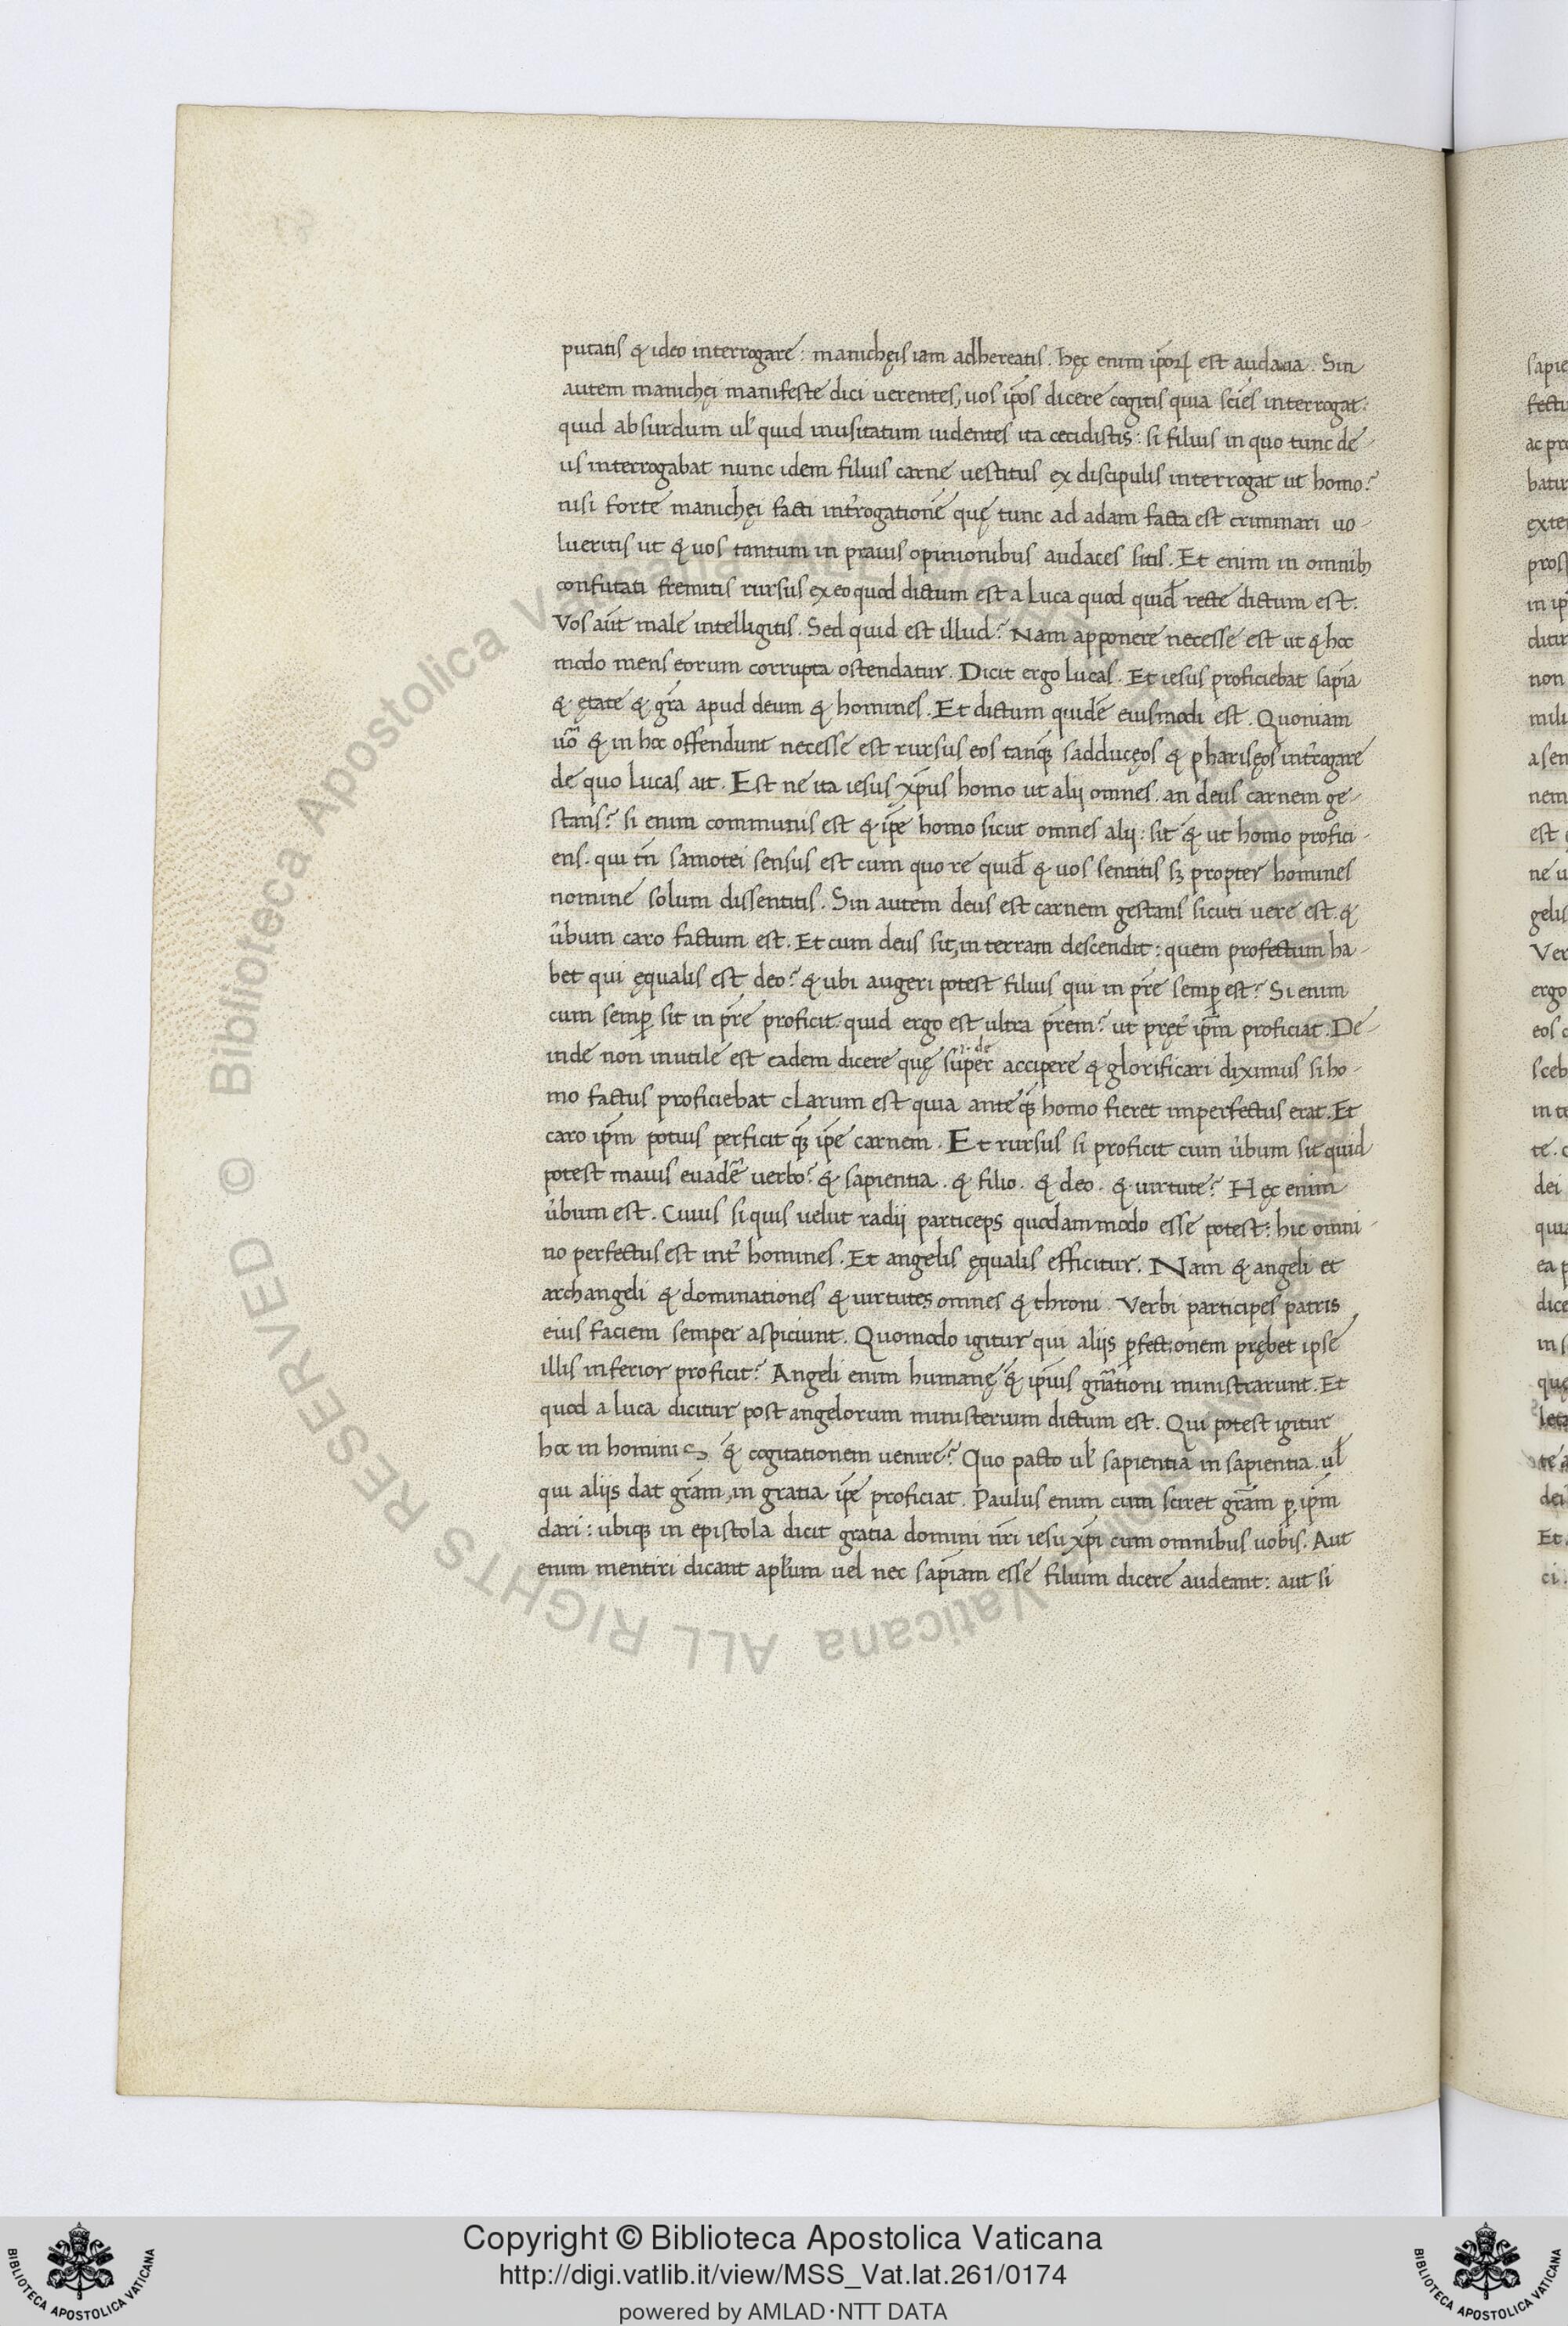 putatis & ideo interrogare: manichęis iam adhereatis. hęc enim ip̄oꝝ est audacia. Sin
autem manichęi manifeste dici uerentes, uos ip̄os dicere cogitis quia sciēs interrogat:
quid absurdum ul' quid inusitatum uidentes ita cecidistis: si filius in quo tunc de-
us interrogabat nunc idem filius carne uestitus ex discipulis interrogat ut homo?
nisi forte manichęi facti int'rogationē quę tunc ad adam facta est criminari uo-
lueritis ut & uos tantum in prauis opinionibus audaces sitis. Et enim in omnibꝫ
confutati fremitis rursus ex eo quod dictum est a Luca quod quid̄ recte dictum est.
Vos aūt male intelligitis. Sed quid est illud? Nam apponere necesse est ut & hoc
modo mens eorum corrupta ostendatur. Dicit ergo lucas. Et iesus proficiebat sapīa
& ętate & grā apud deum & homines. Et dictum quidē eiusmodi est. Quoniam
uō & in hoc offendunt necesse est rursus eos tanꝗ̄ sadducęos & pharisęos int'rogare
de quo Lucas ait. Est ne ita iesus xp̄us homo ut alij omnes. an deus carnem ge-
stans? si enim communis est & ip̄e homo sicut omnes alij: sit & ut homo profici-
ens. qui tn̄ samotei sensus est cum quo re quid̄ & uos sentitis sꝫ propter homines
nomine solum dissentitis. Sin autem deus est carnem gestans sicuti uere est. &
u'bum caro factum est. Et cum deus sit, in terram descendit: quem profectum ha-
bet qui ęqualis est deo? & ubi augeri potest filius qui in pr̄e semꝑ est? Si enim
cum semꝑ sit in pr̄e proficit: quid ergo est ultra pr̄em? ut pręt' ip̄m proficiat. De-
inde non inutile est eadem dicere quę super accipere & glorificari diximus si ho-
mo factus proficiebat clarum est quia anteꝗ̄ homo fieret imperfectus erat. Et
caro ip̄m potius perficit ꝗ̄ ip̄e carnem. Et rursus si proficit cum u'bum sit quid
potest maius euadē uerbo? & sapientia. & filio. & deo. & uirtute? Hęc enim
u'bum est. Cuius si quis uelut radij particeps quodammodo esse potest: hic omni-
no perfectus est int' homines. Et angelis ęqualis efficitur. Nam & angeli et
archangeli & dominationes & uirtutes omnes & throni. Verbi participes patris
eius faciem semper aspiciunt. Quomodo igitur qui alijs ꝑfectionem prębet ipse
illis inferior proficit? Angeli enim humanę & ip̄ius gn̄ationi ministrarunt. Et
quod a luca dicitur post angelorum ministerium dictum est. Qui potest igitur
hoc in hominis & cogitationem uenire? Quo pacto ul' sapientia in sapientia. ul'
qui alijs dat grām, in gratia ip̄e proficiat. Paulus enim cum sciret grām ꝑ ip̄m
dari: ubiqꝫ in epistola dicit gratia domini nr̄i iesu xp̄i cum omnibus uobis. Aut
enim mentiri dicant apl'um uel nec sapīam esse filium dicere audeant: aut si
Copyright © Biblioteca Apostolica Vaticana
http://digi.vatlib.it/view/MSS_Vat.lat.261/0174
powered by AMLAD·NTT DATA